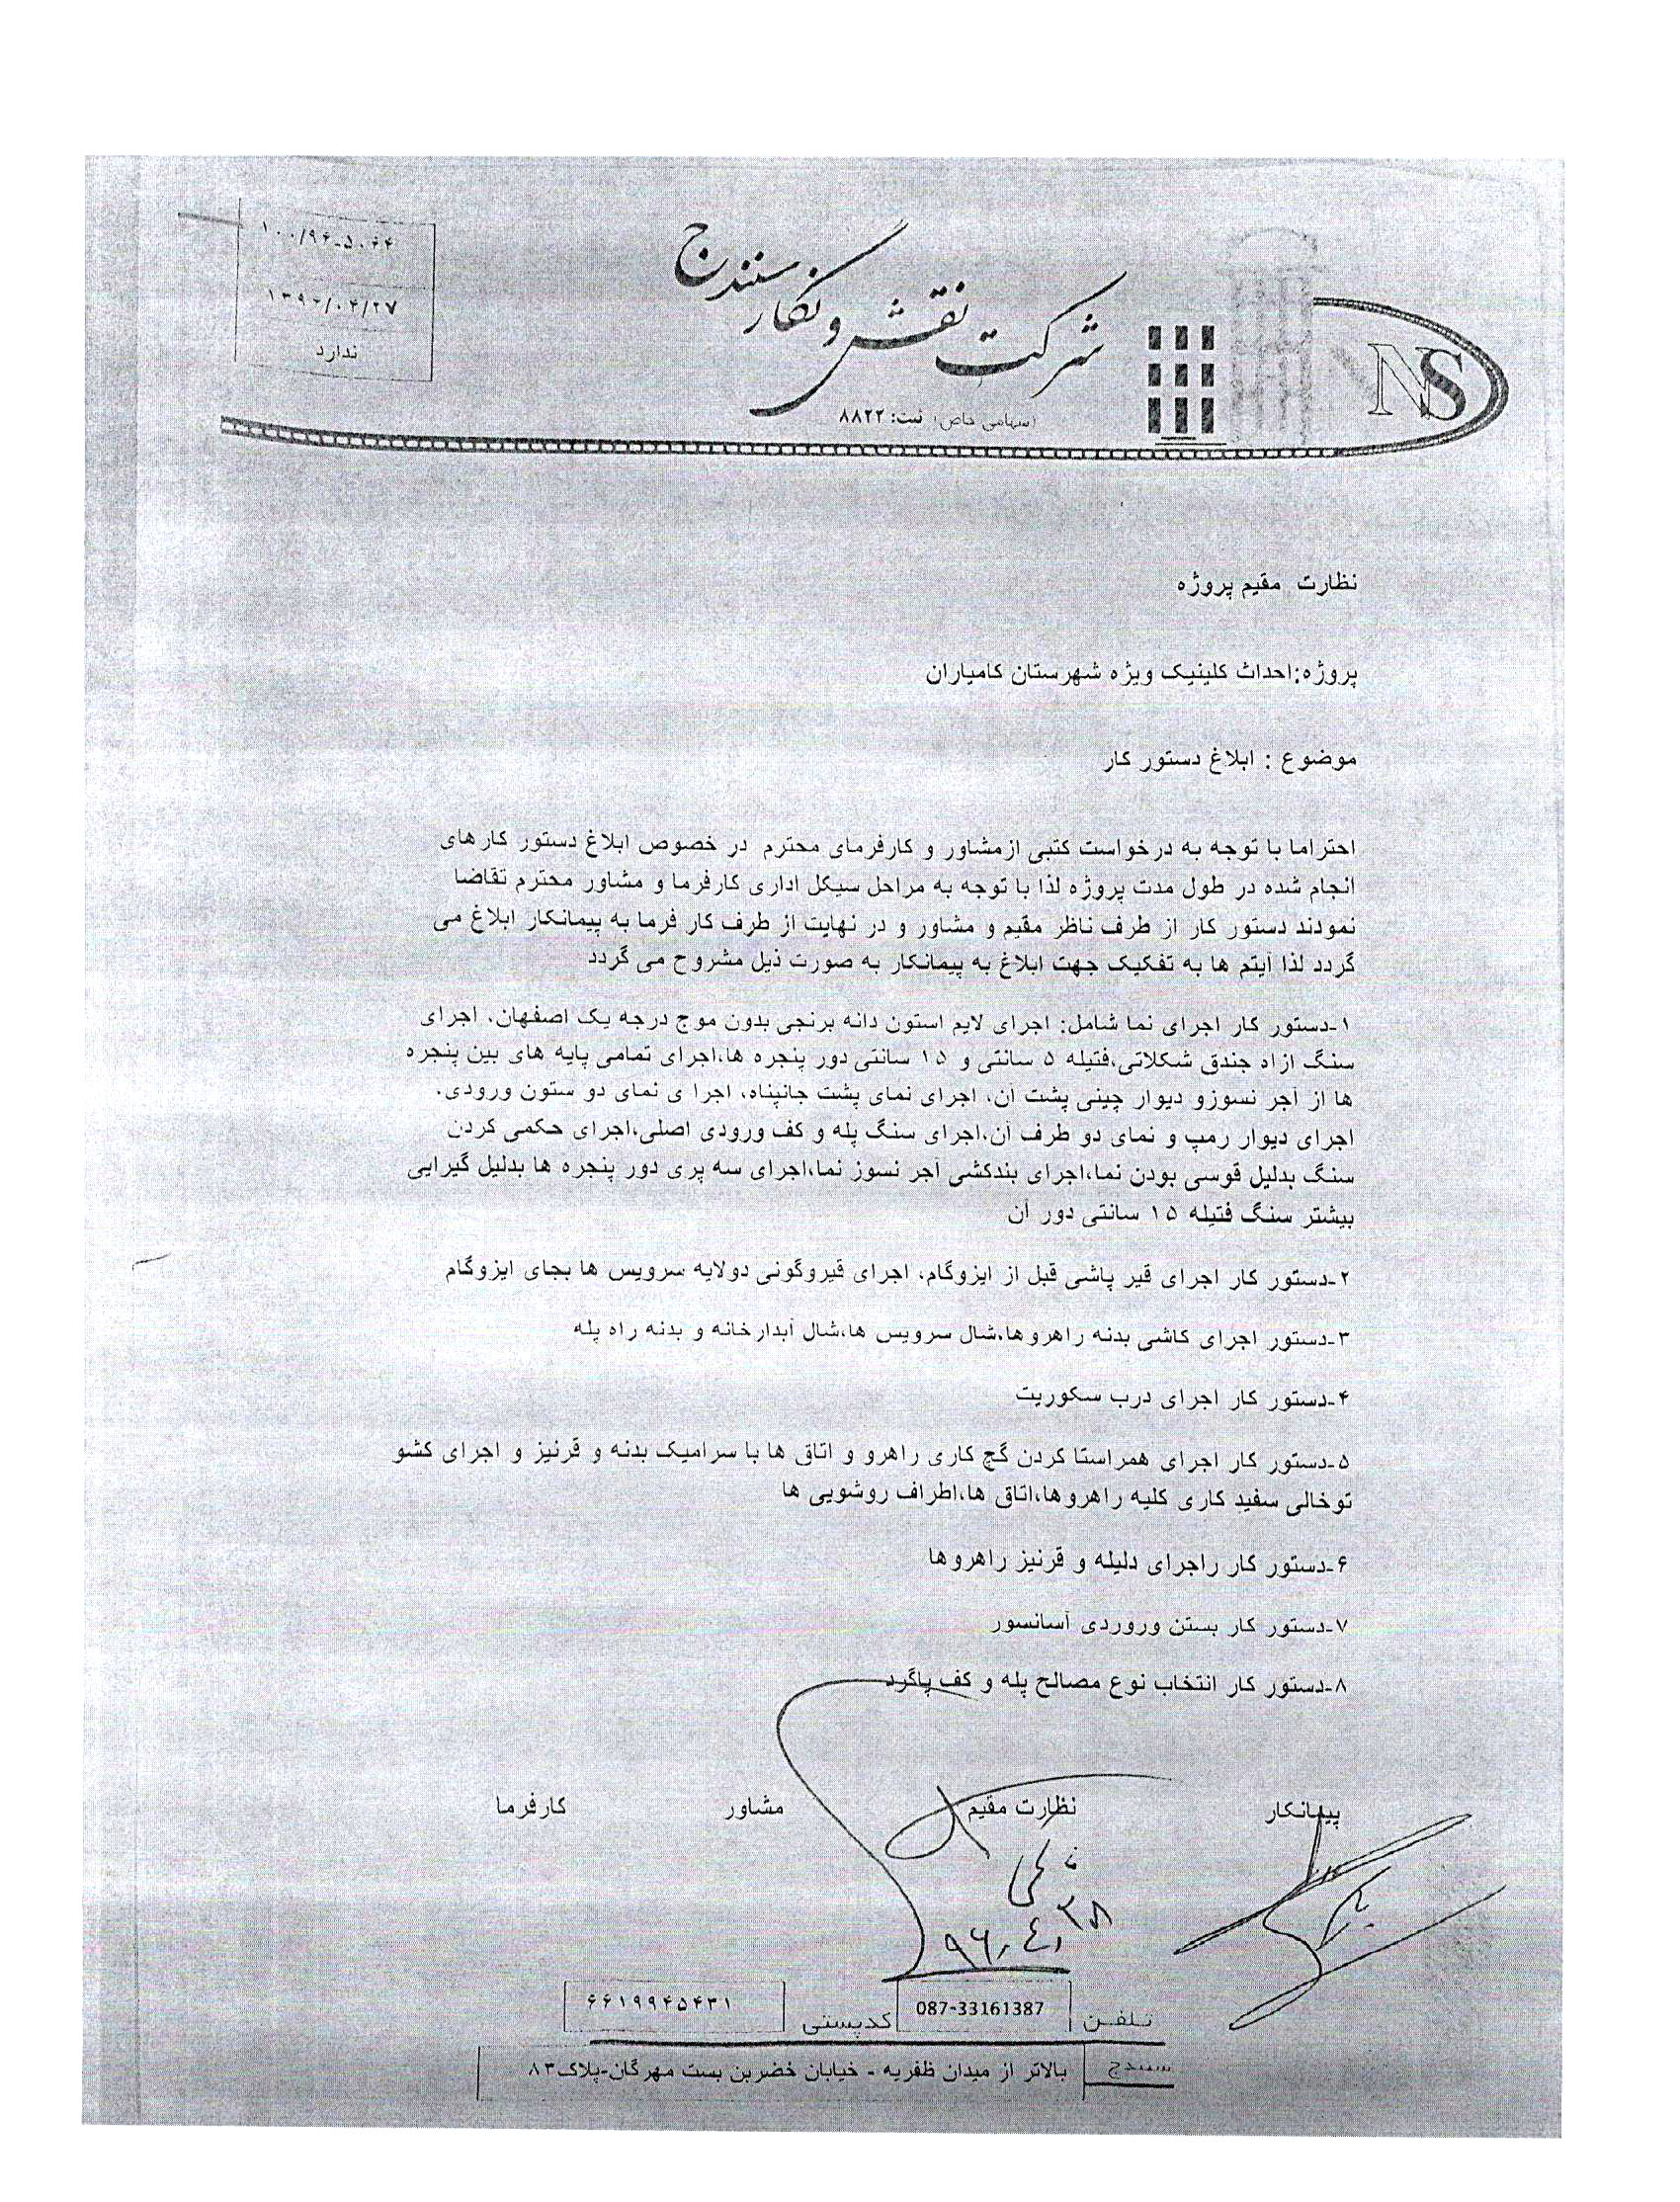 ۱۰۰/۹۶-۵۰۶۴
۱۳۹۶/۰۴/۲۷
ندارد
شرکت نقش و نگار سنندج
(سهامی خاص) ثبت: ۸۸۲۲
NS
نظارت مقیم پروژه
پروژه:احداث کلینیک ویژه شهرستان کامیاران
موضوع : ابلاغ دستور کار
احتراما با توجه به درخواست کتبی ازمشاور و کارفرمای محترم در خصوص ابلاغ دستور کارهای
انجام شده در طول مدت پروژه لذا با توجه به مراحل سیکل اداری کارفرما و مشاور محترم تقاضا
نمودند دستور کار از طرف ناظر مقیم و مشاور و در نهایت از طرف کار فرما به پیمانکار ابلاغ می
گردد لذا آیتم ها به تفکیک جهت ابلاغ به پیمانکار به صورت ذیل مشروح می گردد
۱-دستور کار اجرای نما شامل: اجرای لایم استون دانه برنجی بدون موج درجه یک اصفهان، اجرای
سنگ ازاد جندق شکلاتی،فتیله ۵ سانتی و ۱۵ سانتی دور پنجره ها،اجرای تمامی پایه های بین پنجره
ها از آجر نسوزو دیوار چینی پشت آن، اجرای نمای پشت جانپناه، اجرا ی نمای دو ستون ورودی،
اجرای دیوار رمپ و نمای دو طرف آن،اجرای سنگ پله و کف ورودی اصلی،اجرای حکمی کردن
سنگ بدلیل قوسی بودن نما،اجرای بندکشی آجر نسوز نما،اجرای سه پری دور پنجره ها بدلیل گیرایی
بیشتر سنگ فتیله ۱۵ سانتی دور آن
۲-دستور کار اجرای قیر پاشی قبل از ایزوگام، اجرای قیروگونی دولایه سرویس ها بجای ایزوگام
۳-دستور اجرای کاشی بدنه راهروها،شال سرویس ها،شال آبدارخانه و بدنه راه پله
۴-دستور کار اجرای درب سکوریت
۵-دستور کار اجرای همراستا کردن گچ کاری راهرو و اتاق ها با سرامیک بدنه و قرنیز و اجرای کشو
توخالی سفید کاری کلیه راهروها،اتاق ها،اطراف روشویی ها
۶-دستور کار راجرای دلیله و قرنیز راهروها
۷-دستور کار بستن وروردی آسانسور
۸-دستور کار انتخاب نوع مصالح پله و کف پاگرد
پیمانکار نظارت مقیم مشاور کارفرما
۹۶،۴،۲۸
تلفن 087-33161387 کدپستی ۶۶۱۹۹۴۵۴۳۱
سنندج بالاتر از میدان ظفریه - خیابان خضربن بست مهرگان-پلاک۸۳